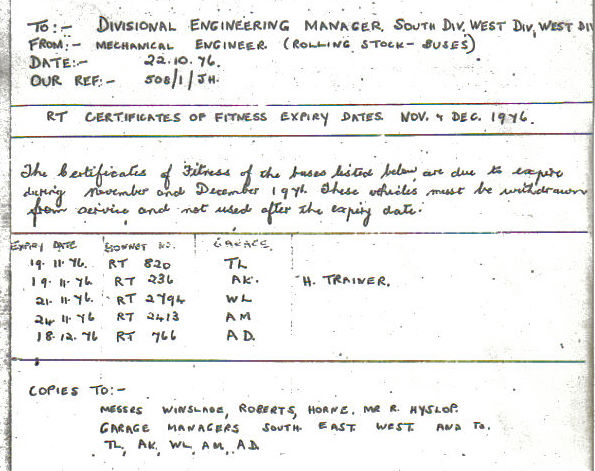 TO:- DIVISIONAL ENGINEERING MANAGER, SOUTH DIV, WEST DIV, WEST DIV
FROM:- MECHANICAL ENGINEER (ROLLING STOCK-BUSES)
DATE:- 22.10.76.
OUR REF:- 508/1/JH.
RT CERTIFICATES OF FITNESS EXPIRY DATES NOV. & DEC. 1976.
The Certificates of Fitness of the buses listed below are due to expire
during November and December 1976. These vehicles must be withdrawn
from service and not used after the expiry date.
EXPIRY DATE BONNET NO. GARAGE
19.11.76. RT 820 TL
19.11.76 RT 236 AK. H. TRAINER.
21.11.76 RT 2794 WL
24.11.76 RT 2413 AM
18.12.76 RT 766 AD.
COPIES TO:-
MESSRS WINSLADE, ROBERTS, HORNE. MR R. HYSLOP.
GARAGE MANAGERS SOUTH EAST WEST AND TO.
TL, AK, WL, AM, AD.